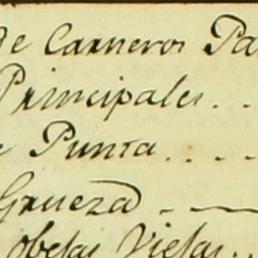 de Carneros Pa
Principales. . .
e Punta. . . .
Grueza. - —
obejas Viejas. .